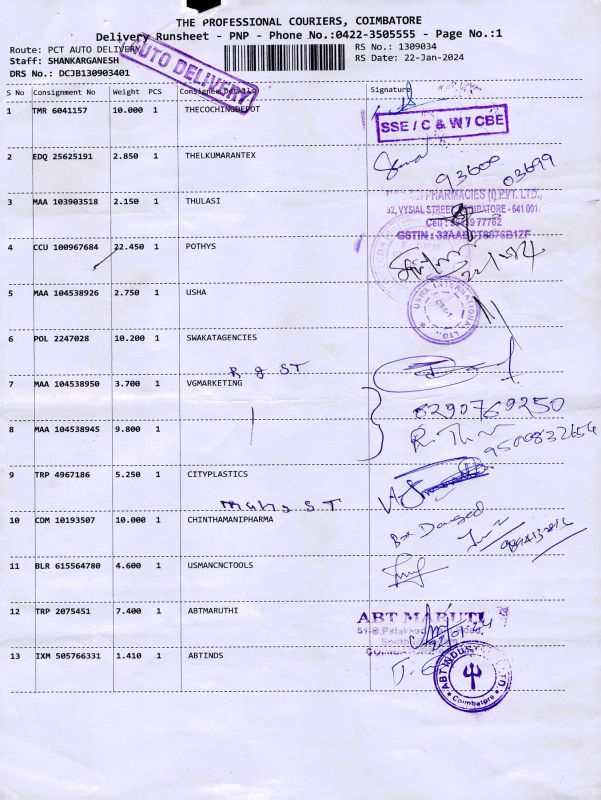 THE PROFESSIONAL COURIERS, COIMBATORE
Delivery Runsheet - PNP - Phone No.:0422-3505555 - Page No.:1
Route: PCT AUTO DELIVERY
RS No.: 1309034
Staff: SHANKARGANESH
RS Date: 22-Jan-2024
DRS No.: DCJB130903401
AUTO DELIVERY
S No Consignment No Weight PCS Consignee Details Signature
1 TMR 6041157 10.000 1 THECOCHINGDEPOT
SSE / C & W / CBE
2 EDQ 25625191 2.850 1 THELKUMARANTEX
93600 03699
3 MAA 103903518 2.150 1 THULASI
PHARMACIES (I) PVT. LTD.,
92, VYSIAL STREET, COIMBATORE - 641 001.
4 CCU 100967684 22.450 1 POTHYS
5 MAA 104538926 2.750 1 USHA
USHA INTERNATIONAL LTD.
6 POL 2247028 10.200 1 SWAKATAGENCIES
R & ST
7 MAA 104538950 3.700 1 VGMARKETING
6290769250
8 MAA 104538945 9.800 1
9500832654
9 TRP 4967186 5.250 1 CITYPLASTICS
S T
10 CDM 10193507 10.000 1 CHINTHAMANIPHARMA
Box Damaged
11 BLR 615564780 4.600 1 USMANCNCTOOLS
12 TRP 2075451 7.400 1 ABTMARUTHI
ABT MARUTI
13 IXM 505766331 1.410 1 ABTINDS
ABT INDUSTRIES LTD
Coimbatore